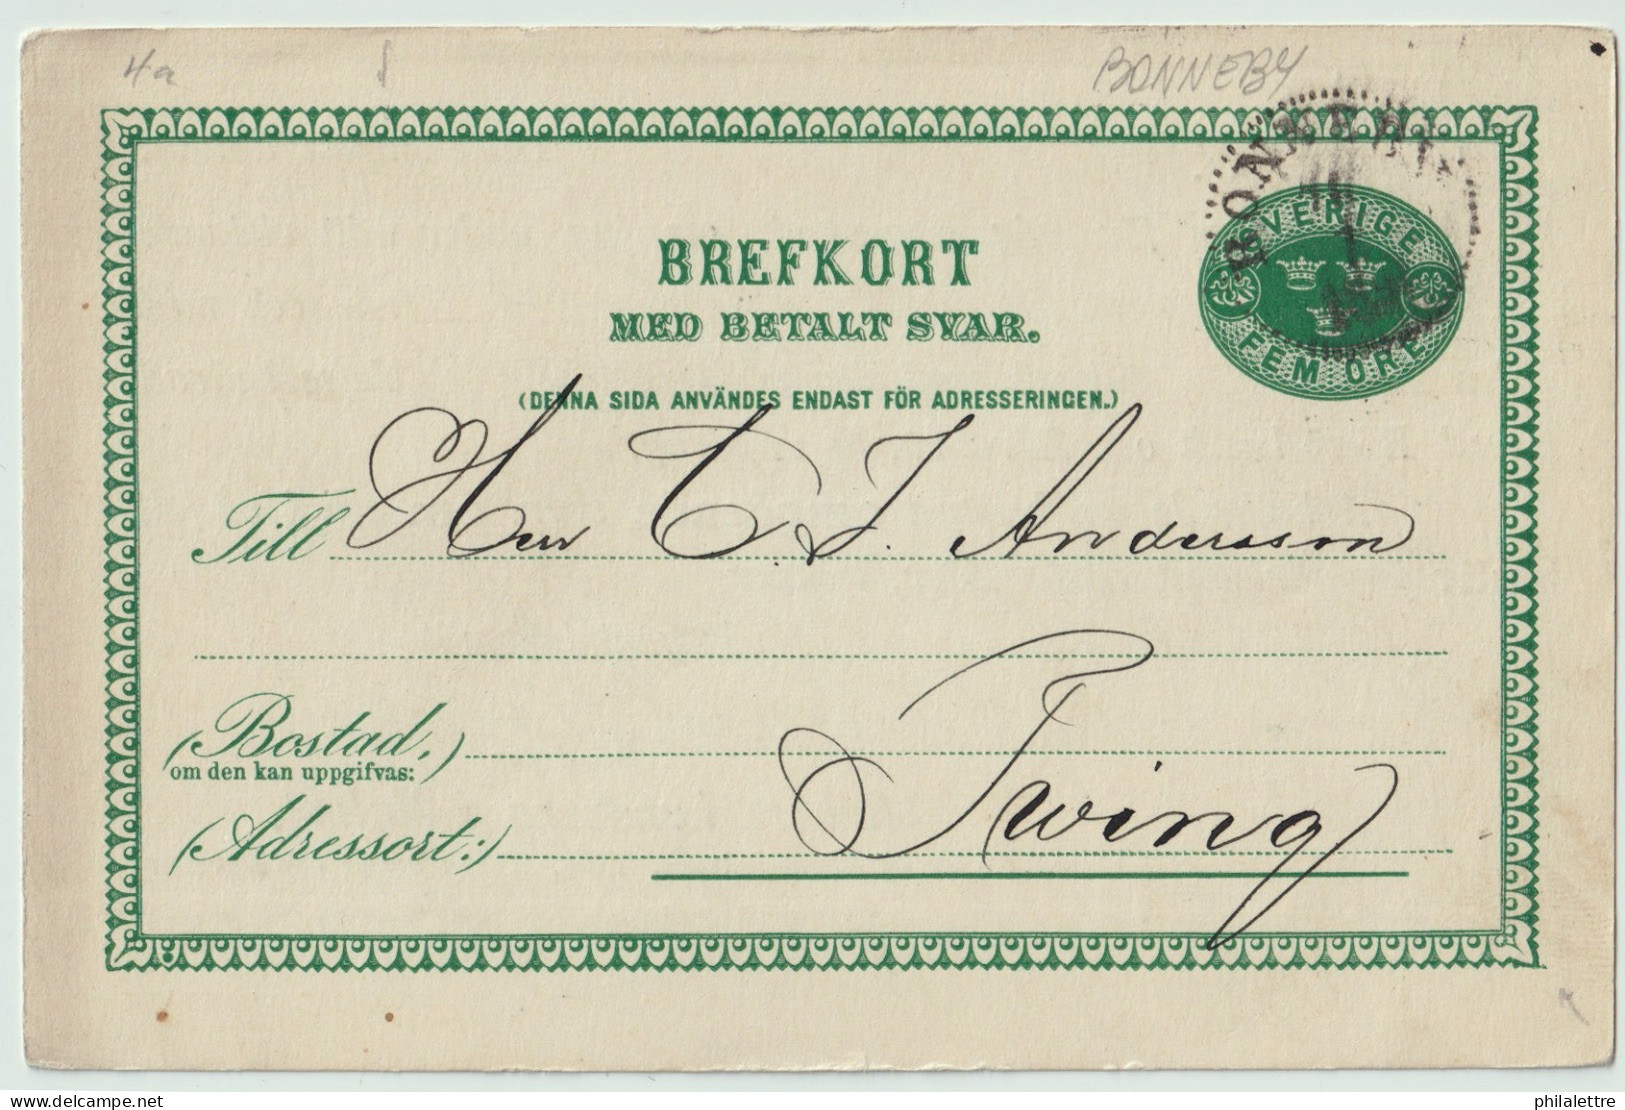 4a
BONNEBY
BREFKORT
MED BETALT SVAR.
(DENNA SIDA ANVÄNDES ENDAST FÖR ADRESSERINGEN.)
SVERIGE
FEM ÖRE
Till Herr C. J. Andersson
(Bostad,)
om den kan uppgifvas:
(Adressort:) Twing
delcampe.net
philalettre